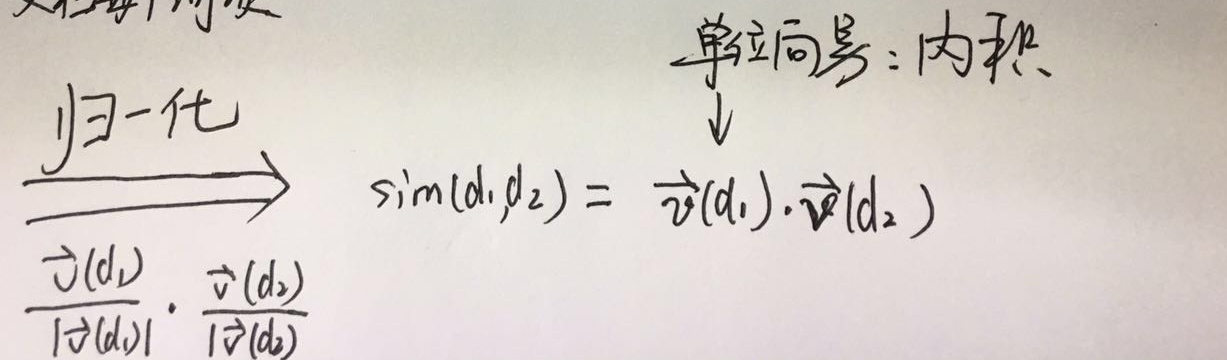 单位向量：内积
归一化
↓
sim(d₁,d₂) = v⃗(d₁)·v⃗(d₂)
v⃗(d₁)/|v⃗(d₁)| · v⃗(d₂)/|v⃗(d₂)|